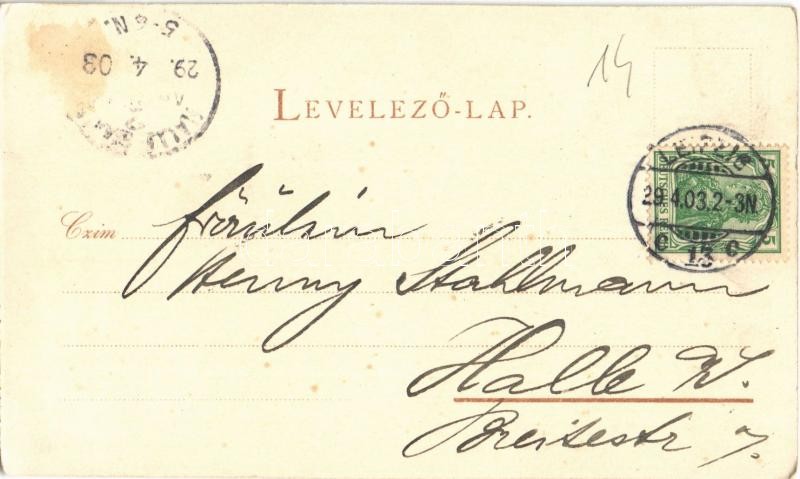 14
LEVELEZŐ-LAP.
LEIPZIG
29.4.03.2-3N
C 15 C
5
5
29. 4. 03
5-6 N.
Czim
Fräulein
Henny Stahlmann
Halle W.
Breitestr 7.